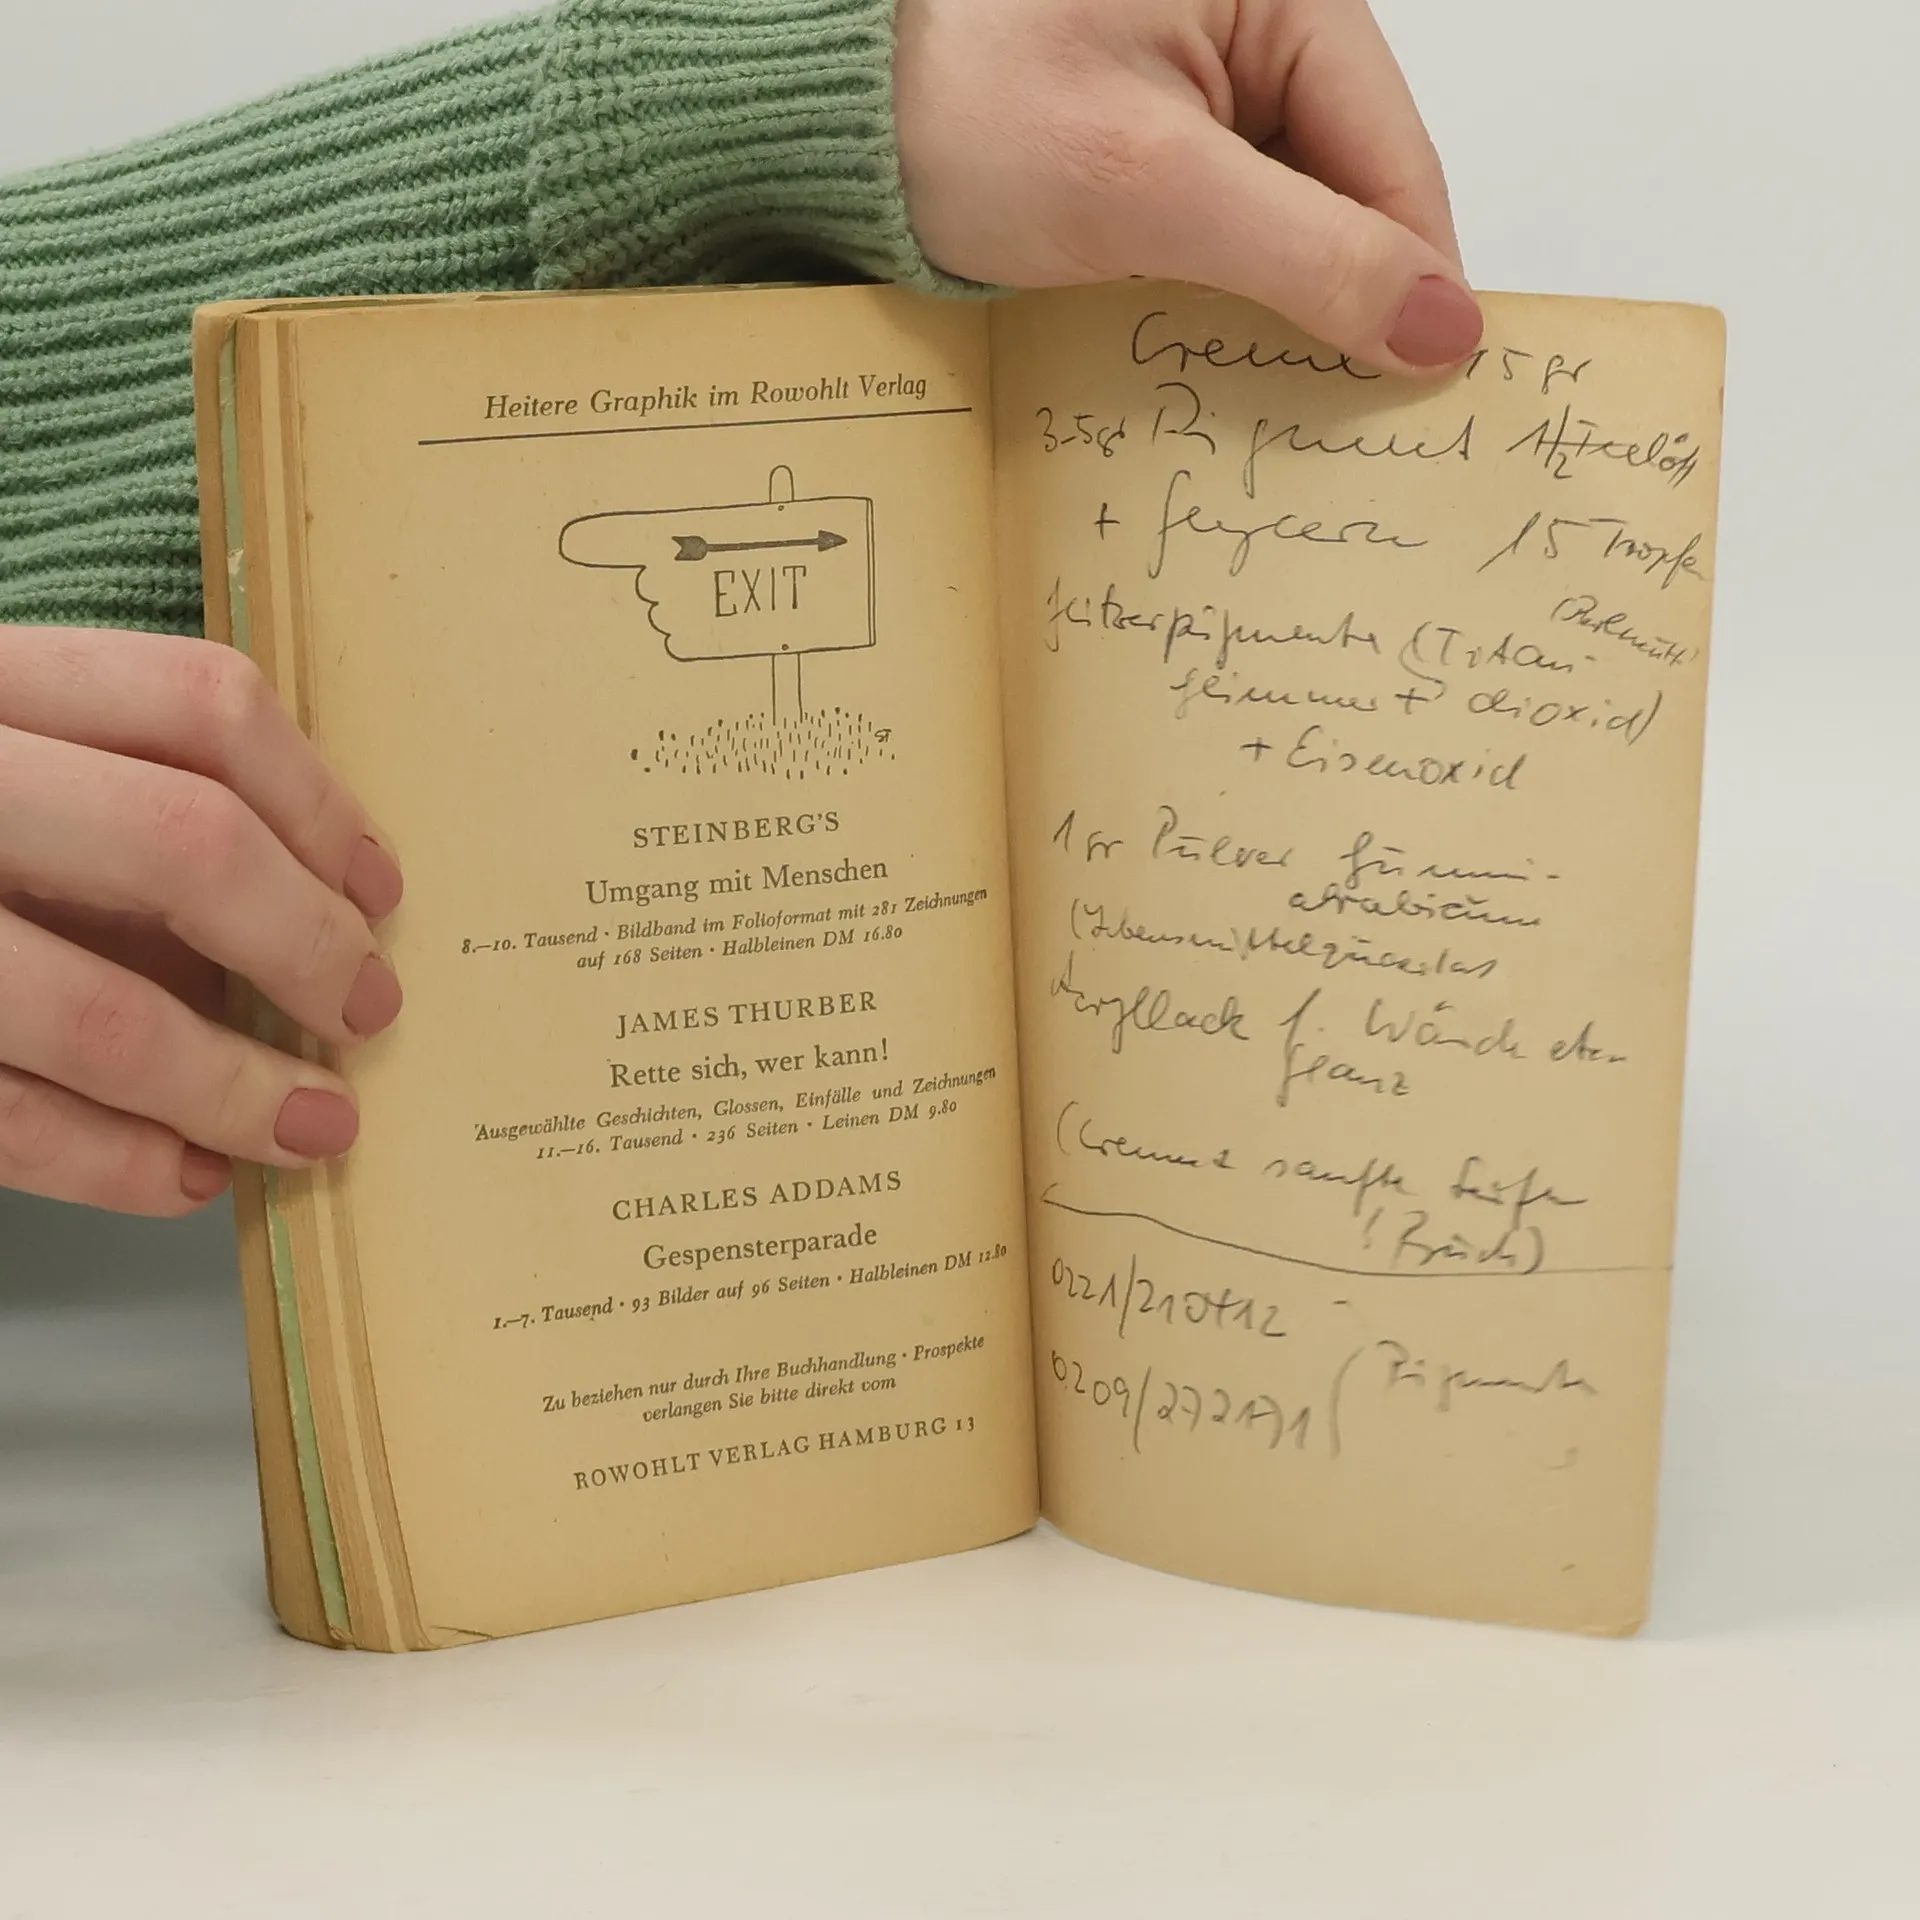 Heitere Graphik im Rowohlt Verlag
EXIT
ST
STEINBERG'S
Umgang mit Menschen
8.—10. Tausend · Bildband im Folioformat mit 281 Zeichnungen
auf 168 Seiten · Halbleinen DM 16.80
JAMES THURBER
Rette sich, wer kann!
Ausgewählte Geschichten, Glossen, Einfälle und Zeichnungen
11.—16. Tausend · 236 Seiten · Leinen DM 9.80
CHARLES ADDAMS
Gespensterparade
1.—7. Tausend · 93 Bilder auf 96 Seiten · Halbleinen DM 12.80
Zu beziehen nur durch Ihre Buchhandlung · Prospekte
verlangen Sie bitte direkt vom
ROWOHLT VERLAG HAMBURG 13
Creme 15 gr
3-5gr Pigment 1/2 Teelöff
+ 15 Tropfen
(Perlmutt)
(Titan-
glimmer + dioxid)
+ Eisenoxid
1 gr Pulver Gummi-
arabicum
Acryllack f. Wände
glanz
sanfte Seifen
0221/210412
0209/272171 Pigmente